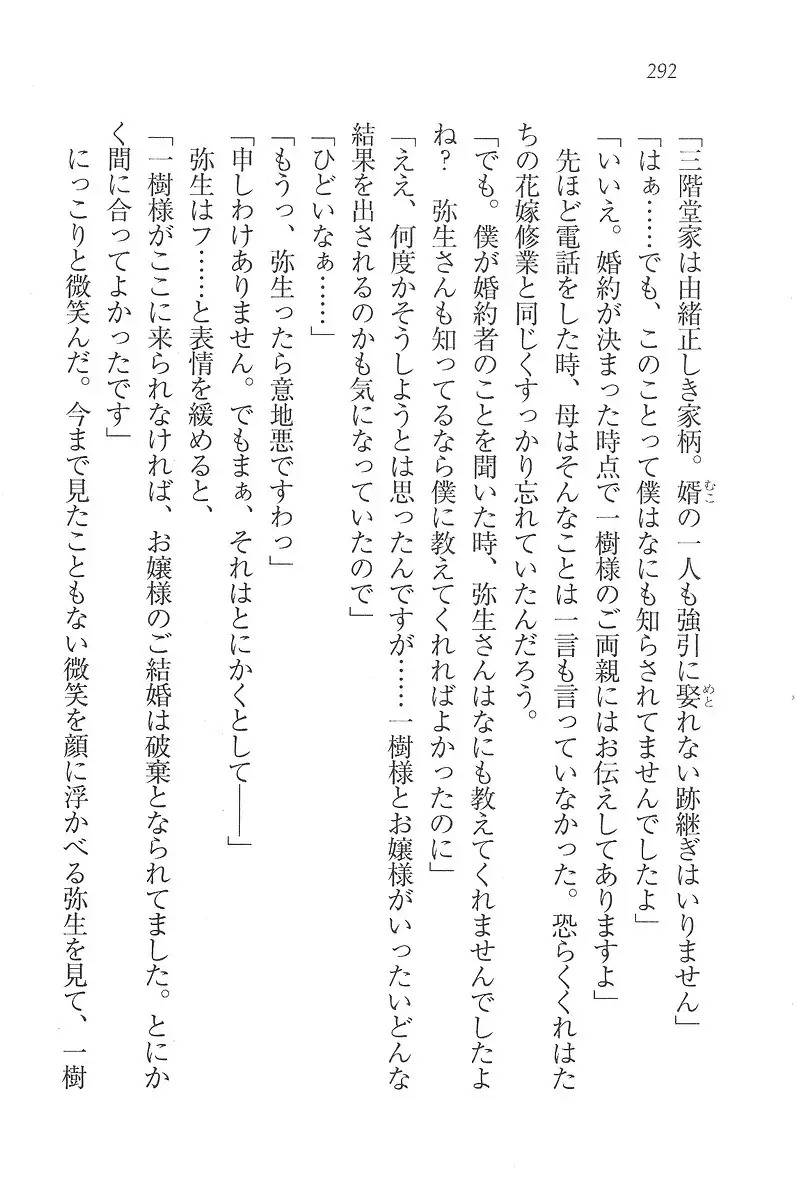 292
「三階堂家は由緒正しき家柄。婿の一人も強引に娶れない跡継ぎはいりません」
「はぁ……でも、このことって僕はなにも知らされてませんでしたよ」
「いいえ。婚約が決まった時点で一樹様のご両親にはお伝えしてありますよ」
先ほど電話をした時、母はそんなことは一言も言っていなかった。恐らくくれはた
ちの花嫁修業と同じくすっかり忘れていたんだろう。
「でも。僕が婚約者のことを聞いた時、弥生さんはなにも教えてくれませんでしたよ
ね?　弥生さんも知ってるなら僕に教えてくれればよかったのに」
「ええ、何度かそうしようとは思ったんですが……一樹様とお嬢様がいったいどんな
結果を出されるのかも気になっていたので」
「ひどいなぁ……」
「もうっ、弥生ったら意地悪ですわっ」
「申しわけありません。でもまぁ、それはとにかくとして――」
弥生はフ……と表情を緩めると、
「一樹様がここに来られなければ、お嬢様のご結婚は破棄となられてました。とにか
く間に合ってよかったです」
にっこりと微笑んだ。今まで見たこともない微笑を顔に浮かべる弥生を見て、一樹